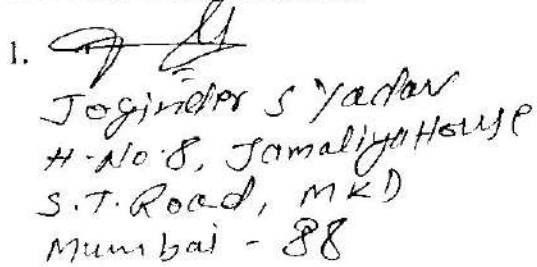 1.
Joginder S Yadav
H-No-8, Jamaliya House
S.T. Road, MKD
Mumbai - 88